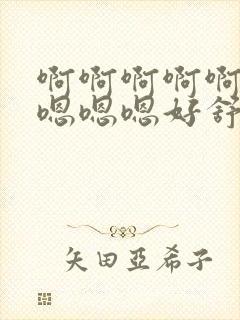 啊啊啊啊啊
嗯嗯嗯好舒
矢田亞希子